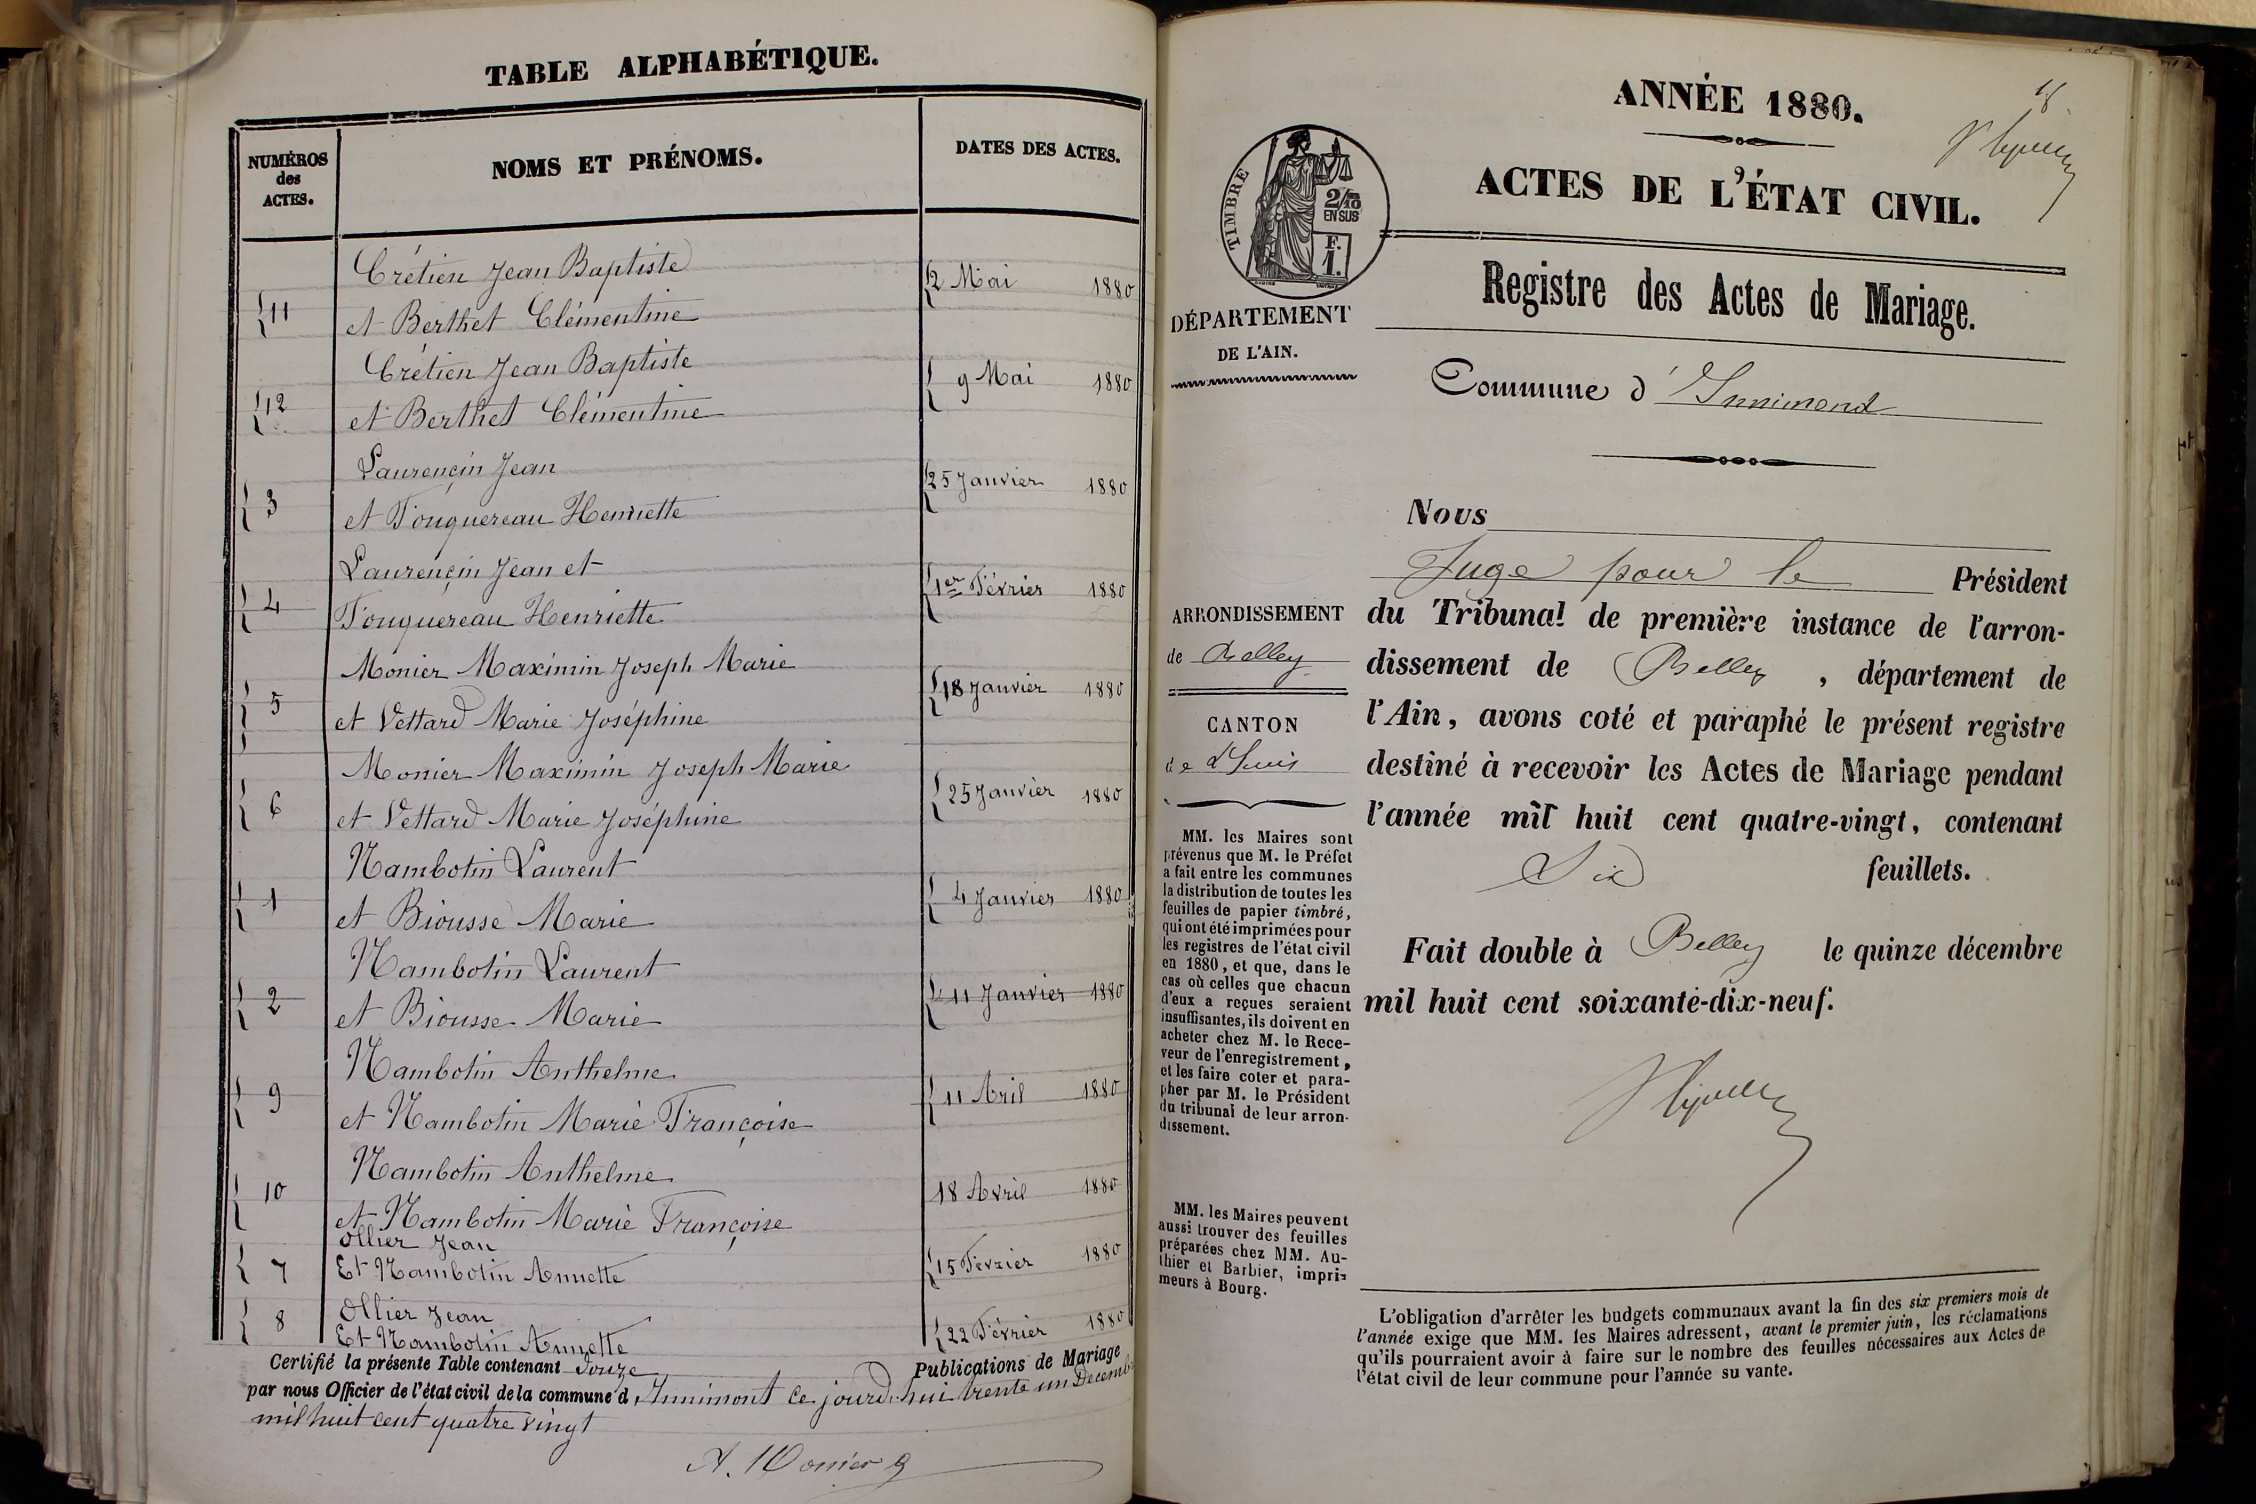 TABLE ALPHABÉTIQUE.
NUMÉROS des ACTES.
NOMS ET PRÉNOMS.
DATES DES ACTES.
Crétien Jean Baptiste
11 et Berthet Clémentine 2 Mai 1880
Crétien Jean Baptiste
12 et Berthet Clémentine 9 Mai 1880
Laurençin Jean
3 et Fouquereau Henriette 25 Janvier 1880
Laurençin Jean et
4 Fouquereau Henriette 1er Février 1880
Monier Maximin Joseph Marie
5 et Vettard Marie Joséphine 18 Janvier 1880
Monier Maximin Joseph Marie
6 et Vettard Marie Joséphine 25 Janvier 1880
Nambotin Laurent
1 et Biousse Marie 4 Janvier 1880
Nambotin Laurent
2 et Biousse Marie 11 Janvier 1880
Nambotin Anthelme
9 et Nambotin Marie Françoise 11 Aril 1880
Nambotin Anthelme
10 et Nambotin Marie Françoise 18 Avril 1880
Ollier Jean
7 Et Nambotin Annette 15 Février 1880
Ollier Jean
8 Et Nambotin Annette 22 Février 1880
Certifié la présente Table contenant Douze Publications de Mariage
par nous Officier de l'état civil de la commune d'Innimont ce jourd'hui trente un Decemb
mil huit cent quatre vingt
A. Monier
ANNÉE 1880.
ACTES DE L'ÉTAT CIVIL.
TIMBRE
2/10 EN SUS
F. 1.
Registre des Actes de Mariage.
DÉPARTEMENT
DE L'AIN.
Commune d'Innimond
Nous
Juge pour le Président
ARRONDISSEMENT
de Belley
CANTON
de Lhuis
du Tribunal de première instance de l'arron-
dissement de Belley, département de
l'Ain, avons coté et paraphé le présent registre
destiné à recevoir les Actes de Mariage pendant
l'année mil huit cent quatre-vingt, contenant
Six feuillets.
Fait double à Belley le quinze décembre
mil huit cent soixante-dix-neuf.
MM. les Maires sont
prévenus que M. le Préfet
a fait entre les communes
la distribution de toutes les
feuilles de papier timbré,
qui ont été imprimées pour
les registres de l'état civil
en 1880, et que, dans le
cas où celles que chacun
d'eux a reçues seraient
insuffisantes, ils doivent en
acheter chez M. le Rece-
veur de l'enregistrement,
et les faire coter et para-
pher par M. le Président
du tribunal de leur arron-
dissement.
MM. les Maires peuvent
aussi trouver des feuilles
préparées chez MM. Au-
thier et Barbier, impri-
meurs à Bourg.
L'obligation d'arrêter les budgets communaux avant la fin des six premiers mois de
l'année exige que MM. les Maires adressent, avant le premier juin, les réclamations
qu'ils pourraient avoir à faire sur le nombre des feuilles nécessaires aux Actes de
l'état civil de leur commune pour l'année su vante.